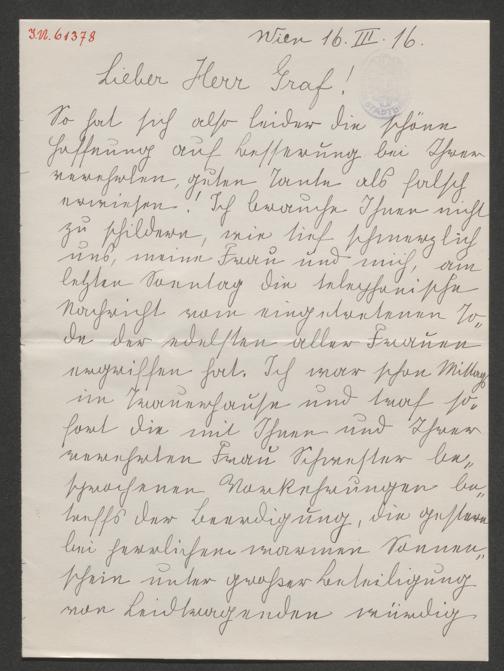 J.N. 61378
Wien 16. III. 16.
Lieber Herr Graf!
So hat sich also leider die schöne
Hoffnung auf Besserung bei Ihrer
verehrten, guten Tante als falsch
erwiesen! Ich brauche Ihnen nicht
zu schildern, wie tief schmerzlich
uns, meine Frau und mich, am
letzten Sonntag die telephonische
Nachricht vom eingetretenen To„
de der edelsten aller Frauen
ergriffen hat. Ich war schon Mittags
im Trauerhause und traf so„
fort die mit Ihnen und Ihrer
verehrten Frau Schwester be„
sprochenen Vorkehrungen be„
treffs der Beerdigung, die gestern
bei herrlichem warmen Sonnen„
schein unter großer Beteiligung
von Leidtragenden würdig